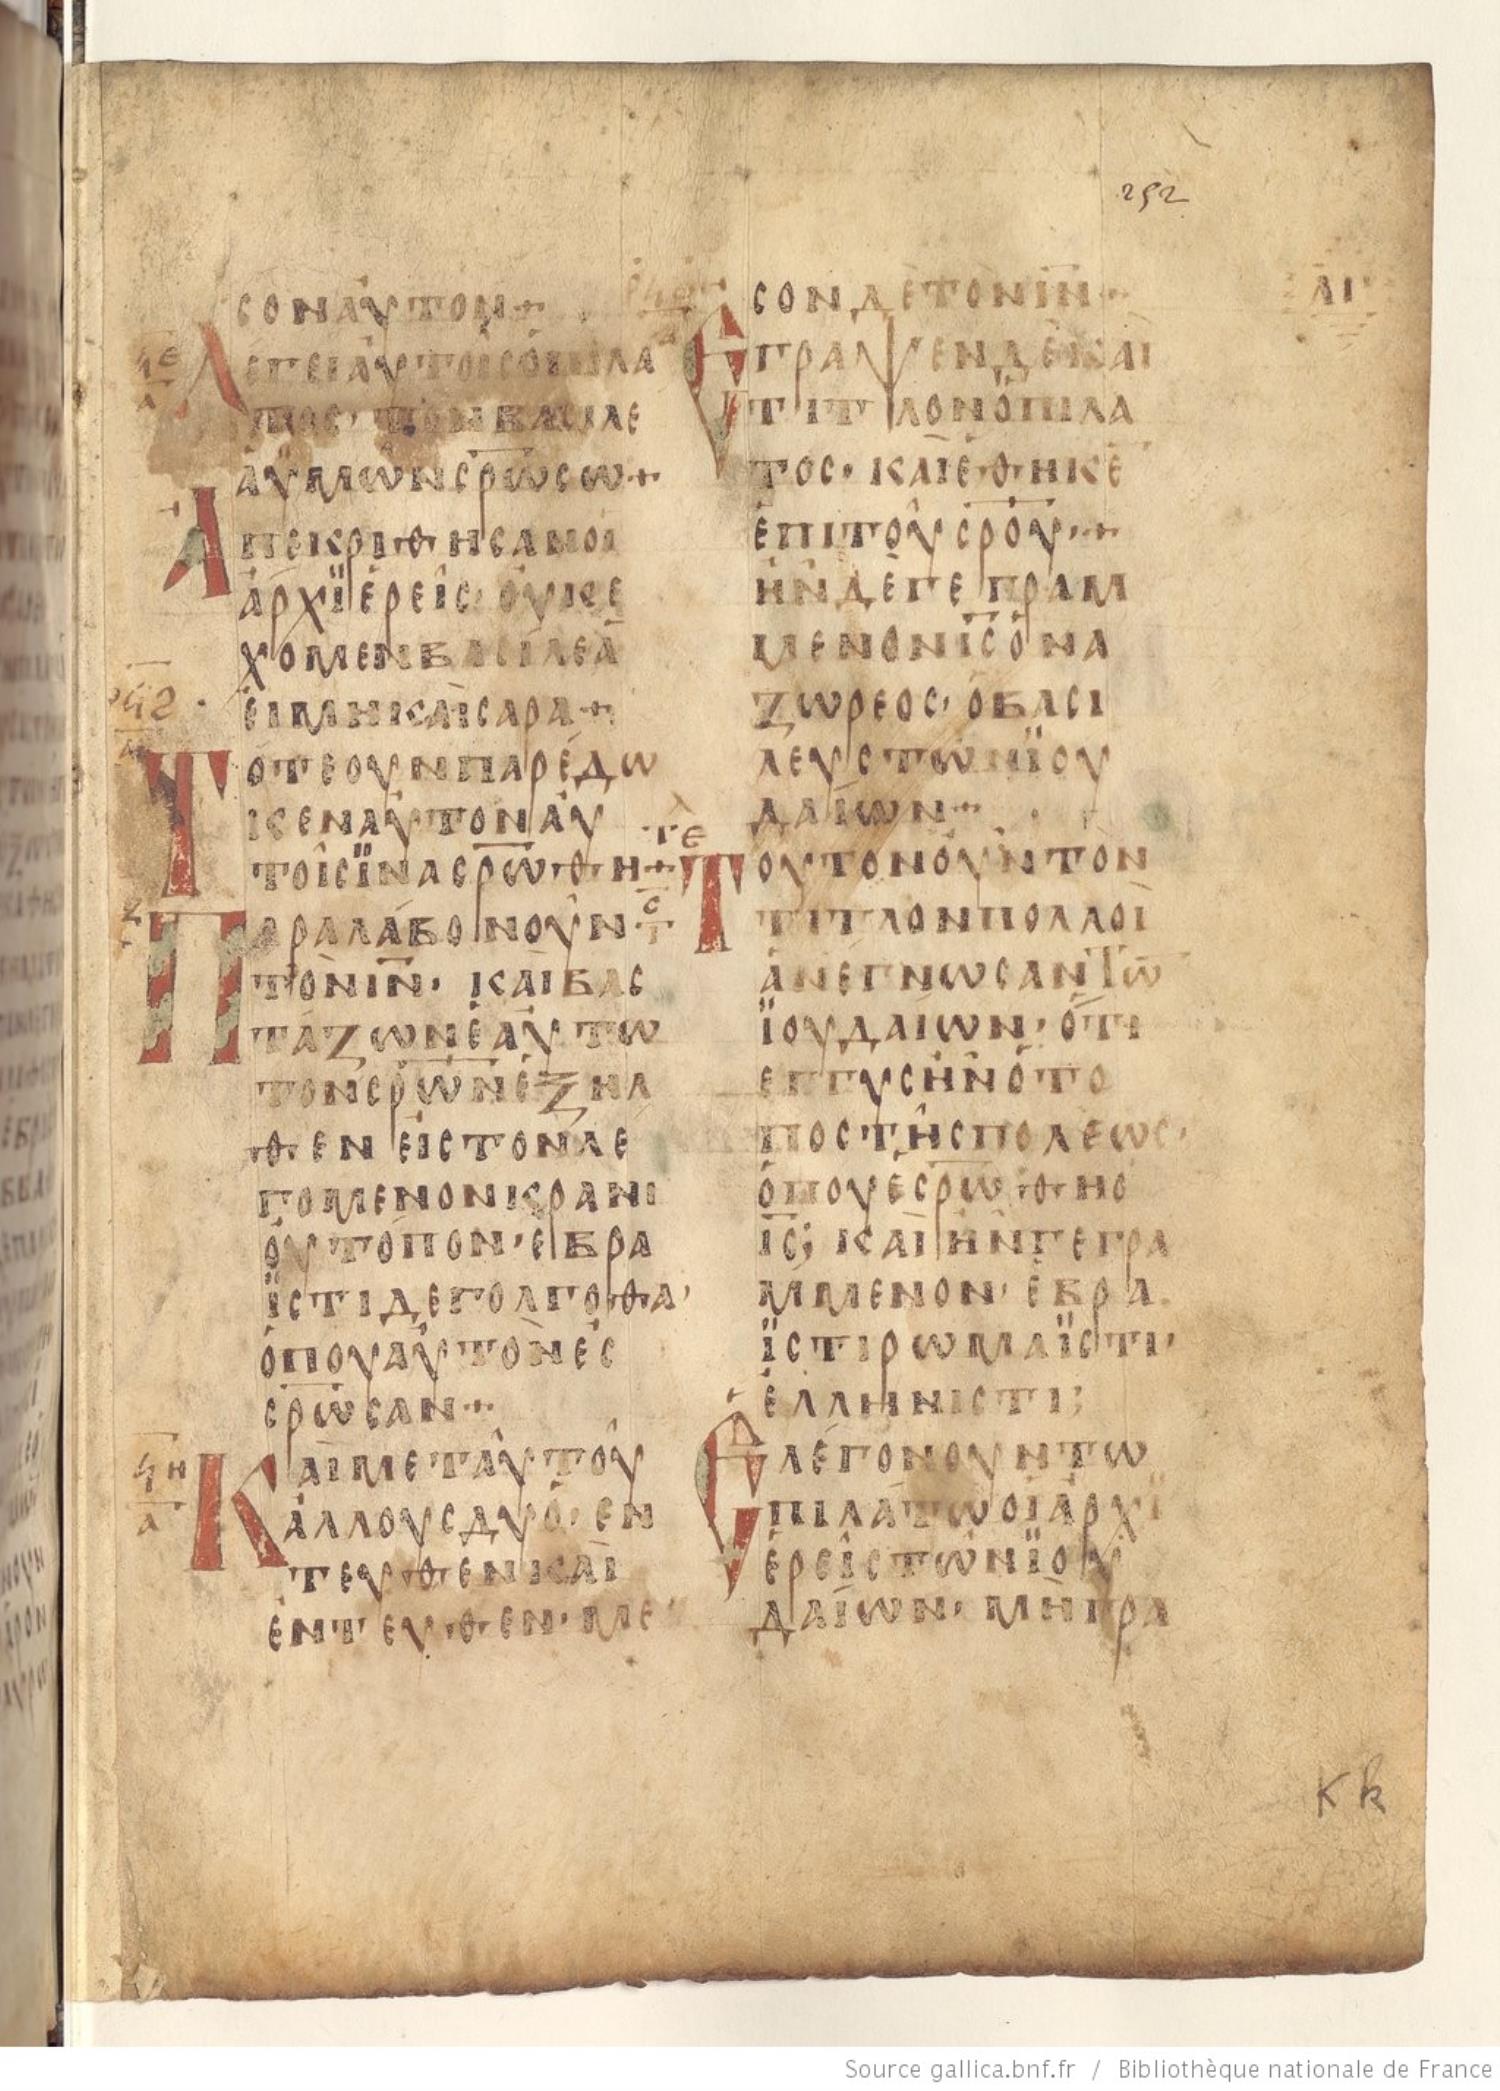 252
ΛΙ
ϹΟΝΑΥΤΟΝ+
ϞΕ
Α
ΛΕΓΕΙΑΥΤΟΙϹΟΠΙΛΑ
ΤΟϹ· ΤΟΝΒΑϹΙΛΕ
ΑΥΜΩΝϹΡΩϹΩ+
ΑΠΕΚΡΙΘΗϹΑΝΟΙ
ΑΡΧΙΕΡΕΙϹ· ΟΥΚΕ
ΧΟΜΕΝΒΑϹΙΛΕΑ
ΕΙΜΗΚΑΙϹΑΡΑ+
ΤΟΤΕΟΥΝΠΑΡΕΔΩ
ΚΕΝΑΥΤΟΝΑΥ
ΤΟΙϹΪΝΑϹΡΩΘΗ+
ΠΑΡΑΛΑΒΟΝΟΥΝ
ΤΟΝΙΝ· ΚΑΙΒΑϹ
ΤΑΖΩΝΕΑΥΤΩ
ΤΟΝϹΡΩΝΕΞΗΛ
ΘΕΝΕΙϹΤΟΝΛΕ
ΓΟΜΕΝΟΝΚΡΑΝΙ
ΟΥΤΟΠΟΝ· ΕΒΡΑ
ΪϹΤΙΔΕΓΟΛΓΟΘΑ·
ΟΠΟΥΑΥΤΟΝΕϹ
ϹΡΩϹΑΝ+
ϞΗ
Α
ΚΑΙΜΕΤΑΥΤΟΥ
ΑΛΛΟΥϹΔΥΟ· ΕΝ
ΤΕΥΘΕΝΚΑΙ
ΕΝΤΕΥΘΕΝ· ΜΕ
ϹΟΝΔΕΤΟΝΙΝ+
ΕΓΡΑΨΕΝΔΕΚΑΙ
ΤΙΤΛΟΝΟΠΙΛΑ
ΤΟϹ· ΚΑΙΕΘΗΚΕ
ΕΠΙΤΟΥϹΡΟΥ·+
ΗΝΔΕΓΕΓΡΑΜ
ΜΕΝΟΝΙϹΟΝΑ
ΖΩΡΕΟϹ· ΟΒΑϹΙ
ΛΕΥϹΤΩΝΪΟΥ
ΔΑΙΩΝ+
ΤΟΥΤΟΝΟΥΝΤΟΝ
ΤΙΤΛΟΝΠΟΛΛΟΙ
ΑΝΕΓΝΩϹΑΝΤΩ
ΪΟΥΔΑΙΩΝ· ΟΤΙ
ΕΓΓΥϹΗΝΟΤΟ
ΠΟϹΤΗϹΠΟΛΕΩϹ·
ΟΠΟΥΕϹΡΩΘΗΟ
ΙϹ; ΚΑΙΗΝΓΕΓΡΑ
ΜΜΕΝΟΝ· ΕΒΡΑ
ΪϹΤΙΡΩΜΑΪϹΤΙ·
ΕΛΛΗΝΙϹΤΙ;
ΕΛΕΓΟΝΟΥΝΤΩ
ΠΙΛΑΤΩΟΙΑΡΧΙ
ΕΡΕΙϹΤΩΝΪΟΥ
ΔΑΙΩΝ· ΜΗΓΡΑ
K k
Source gallica.bnf.fr / Bibliothèque nationale de France